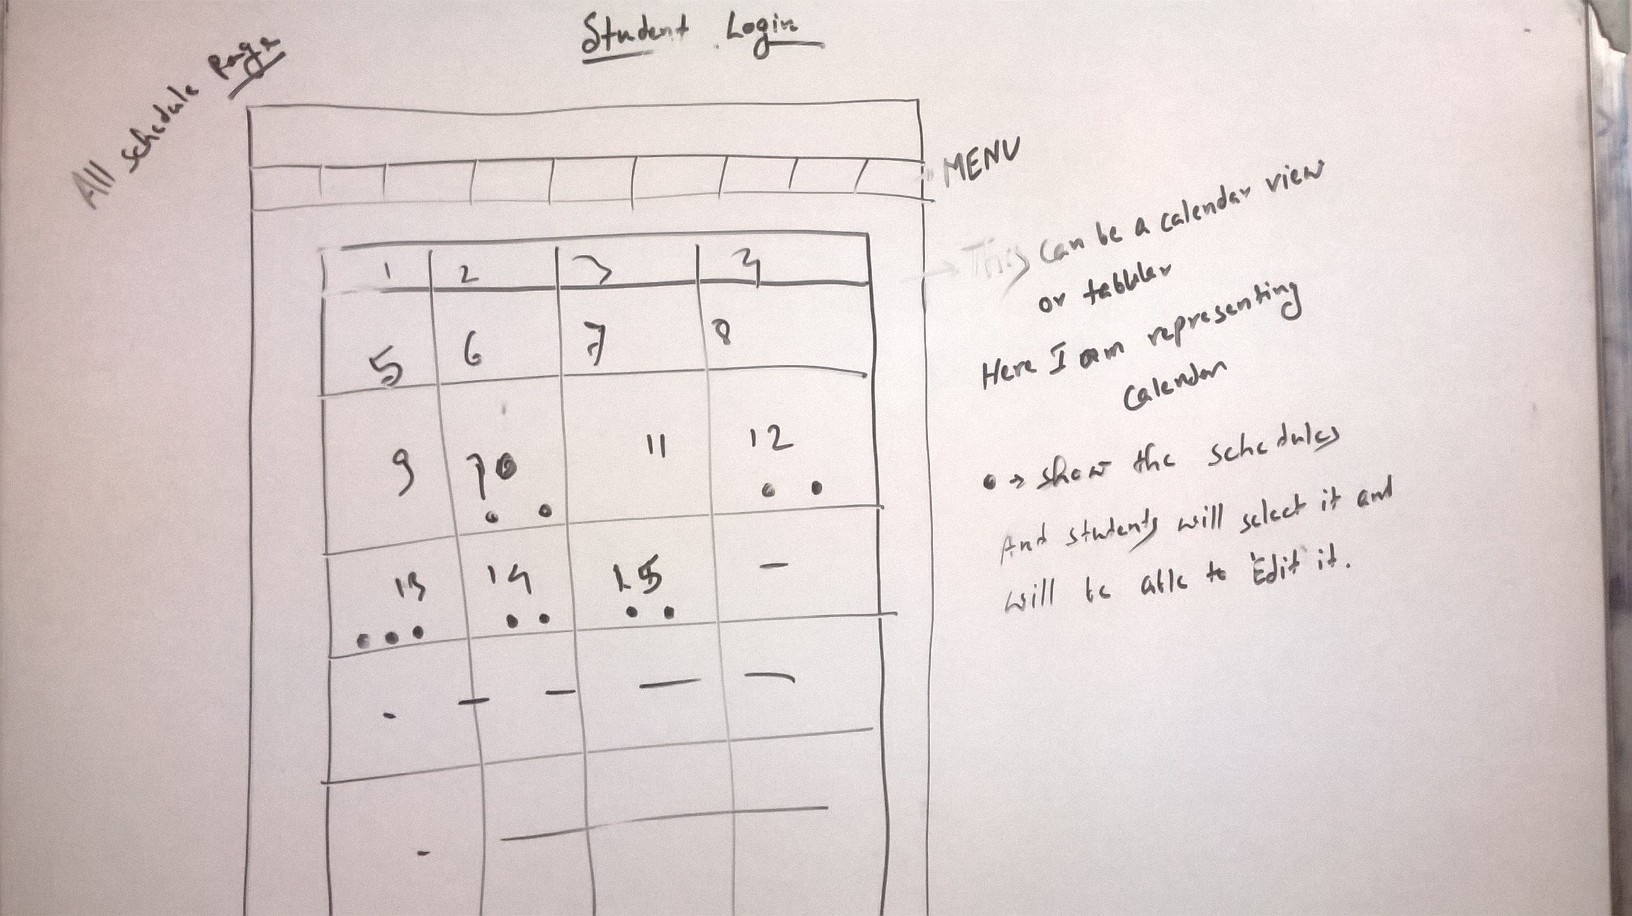 Student Login
All schedule Page
MENU
1 2 3 4
5 6 7 8
9 10 11 12
13 14 15 -
This can be a calendar view
or tabbler
Here I am representing
Calendar
• → show the schedules
And students will select it and
will be able to Edit it.